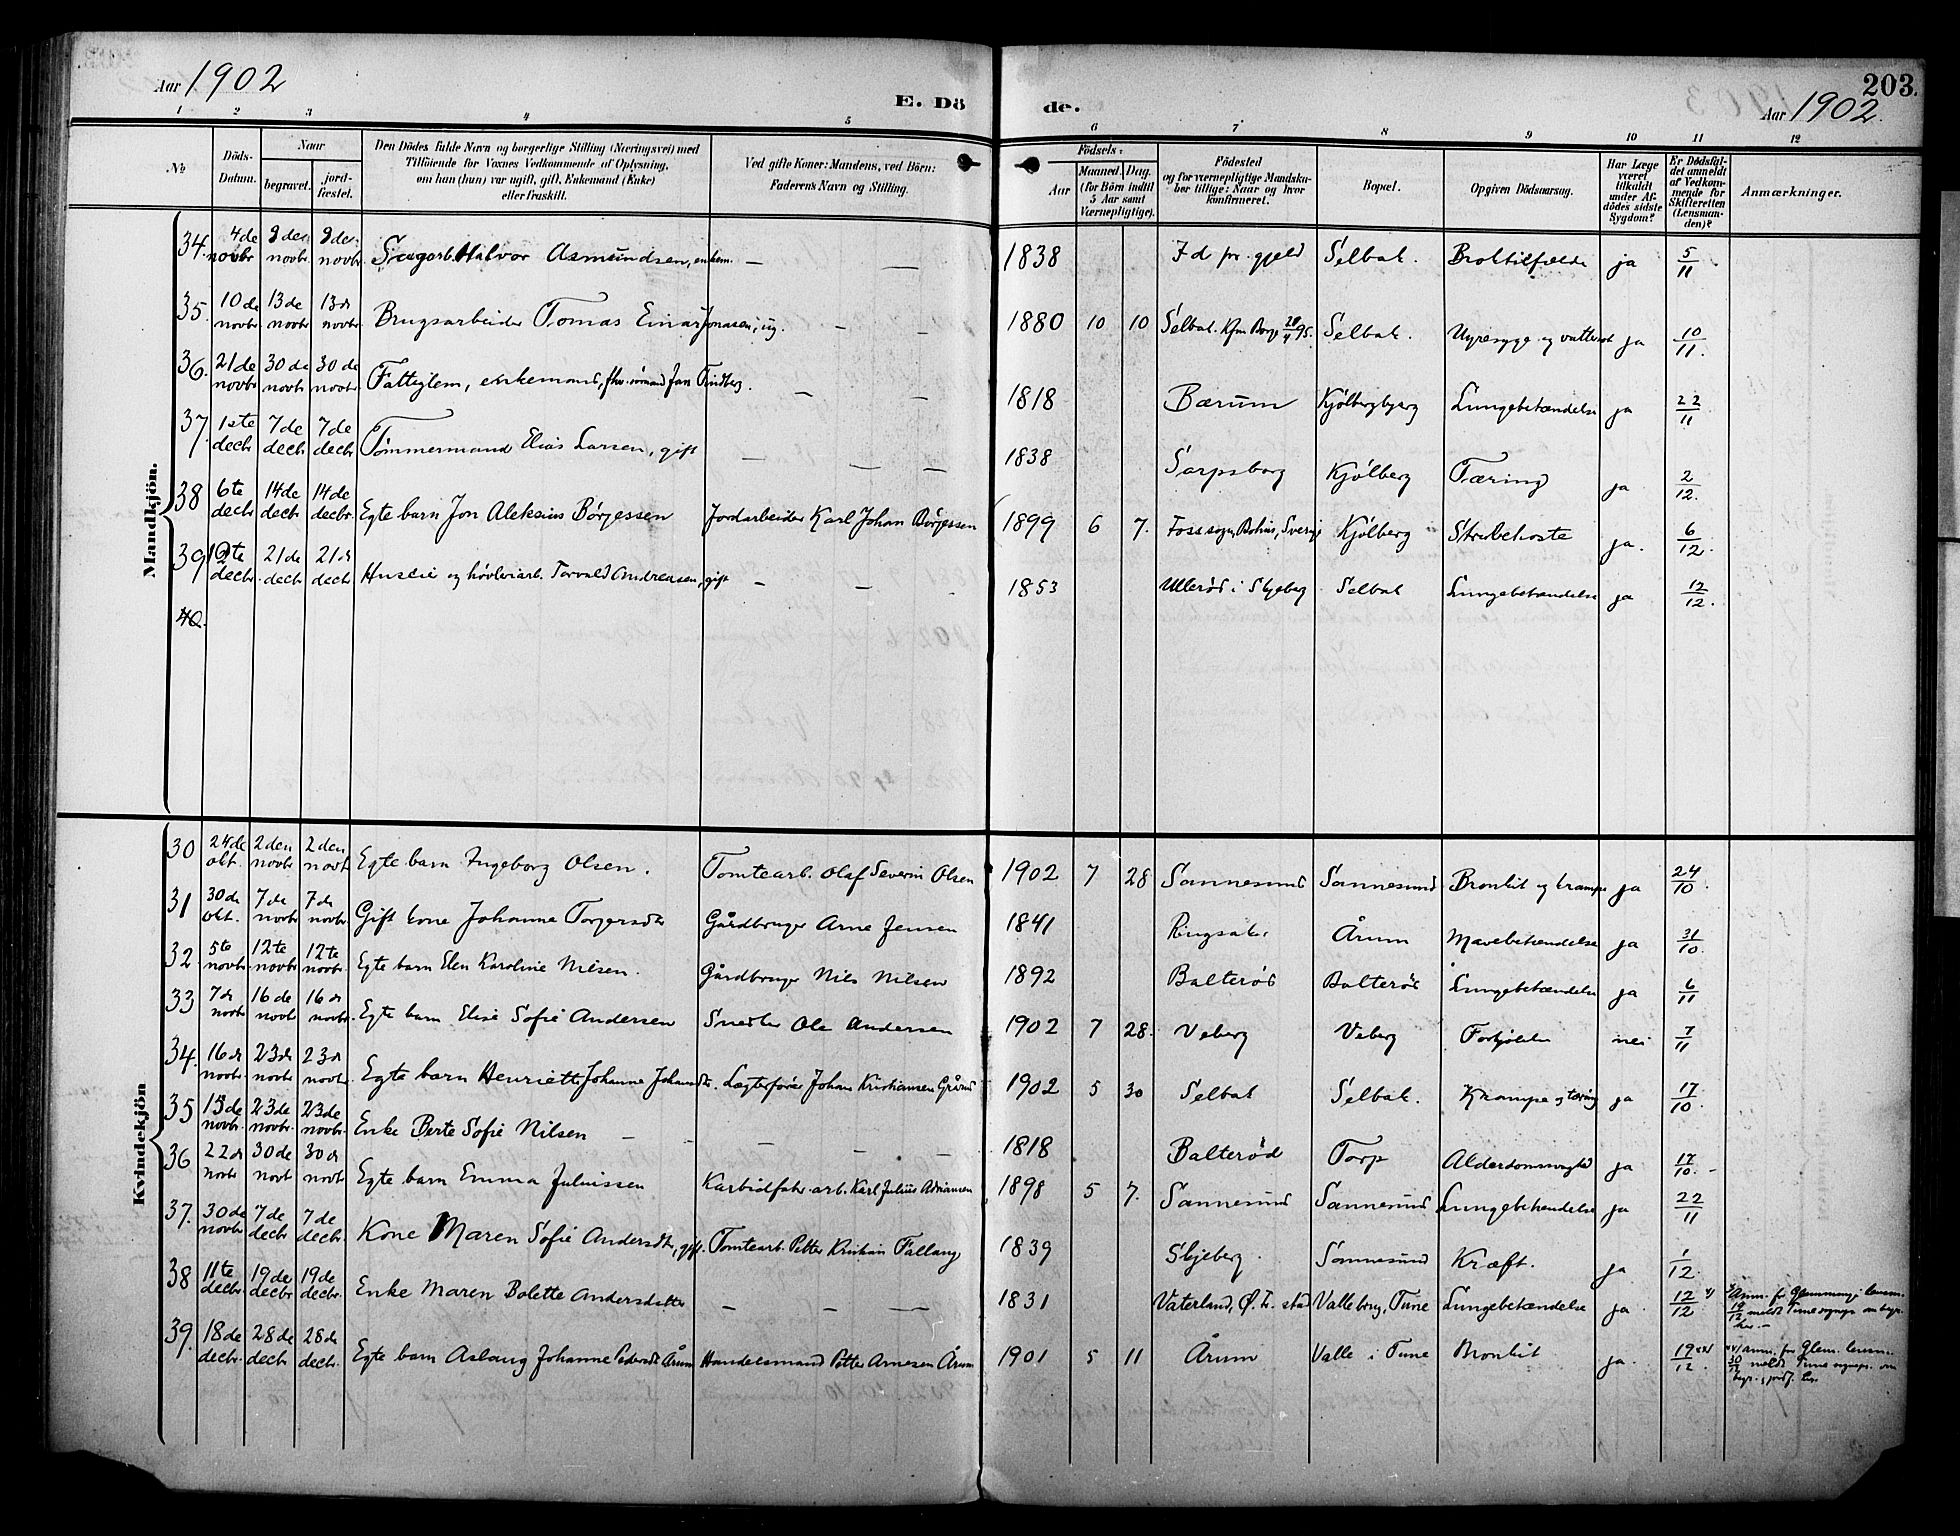 Aar 1902
E. Dö
de.
203.
Aar 1902.
1 2 3 4 5 6 7 8 9 10 11 12
No
Döds-
Datum.
Naar
begravet.
jord-
fæstet.
Den Dödes fulde Navn og borgerlige Stilling (Næringsvei) med
Tilföiende for Voxnes Vedkommende af Oplysning,
om han (hun) var ugift, gift, Enkemand (Enke)
eller fraskilt.
Ved gifte Koner: Mandens, ved Börn:
Faderens Navn og Stilling.
Födsels:
Aar
Maaned. Dag.
(for Börn indtil
5 Aar samt
Værnepligtige).
Födested
og for værnepligtige Mandska-
ber tillige: Naar og hvor
konfirmeret.
Bopæl.
Opgiven Dödsaarsag.
Har Læge
været
tilkaldt
under Af-
dödes sidste
Sygdom?
Er Dødsfal-
det anmeldt
af Vedkom-
mende for
Skifteretten
(Lensman-
den)?
Anmærkninger.
Mandkjön.
34. 4de novbr 9de novbr. 9de novbr. Sagarb. Halvor Asmundsen, enkem. — — 1838 Id pr.gjeld Selbak. Broktilfælde ja 5/11.
35. 10de novbr. 13de novbr 13de novbr. Brugsarbeider Tomas Einar Jonasen, ug. — — 1880 10 10 Selbak. Kfm Borge 28/4 95. Selbak. Nyresyge og vattersot ja 10/11.
36. 21de novbr 30de novbr 30de novbr. Fattiglem, enkemand, fhv. Jan Lindberg. — — 1818 Bærum Kjølbergbjerg Lungebetændelse ja 22/11
37. 1ste decbr 7de decbr 7de decbr Tømmermand Elias Larsen, gift — — — 1838 Sarpsborg Kjølberg Tæring ja 2/12.
38 6te decbr 14de decbr 14de decbr. Egte barn Jon Aleksius Børjessen Jordarbeider Karl Johan Børjessen 1899 6 7. Foss sogn, Bohus, Sverige Kjølberg Strubehoste ja. 6/12.
39 12te decbr. 21de decbr 21de decbr Huseier og høvleriarb. Torvald Andreasen, gift — — 1853 Ullerød i Skjeberg Selbak Lungebetændelse ja 12/12.
40.
Kvindekjön
30 24de okt. 2den novbr 2den novbr. Egte barn Ingeborg Olsen. Tomtearb. Olaf Severin Olsen 1902 7 28 Sannesund Sannesund Bronkit og krampe ja 24/10.
31 30de okt. 7de novbr 7de novbr Gift kone Johanne Torgersdtr Gårdbruger Arne Jensen 1841 Ringsaker Årum Mavebetændelse ja 31/10.
32. 5te novbr 12te novbr. 12te novbr. Egte barn Elen Karoline Nilsen. Gårdbruger Nils Nilsen 1892 Balterød Balterød Lungebetændelse ja 6/11
33 7de novbr 16de novbr 16de novbr. Egte barn Elise Sofie Andersen Snedker Ole Andersen 1902 7 28. Veberg Veberg Forkjølelse nei 7/11
34. 16de novbr. 23de novbr. 23de novbr. Egte barn Henriette Johanne Johansdtr. Lægterfører Johan Kristiansen Grånd 1902 5 30 Selbak Selbak. Krampe og tæring ja 17/10.
35 15de novbr. 23de novbr. 23de novbr. Enke Berte Sofie Nilsen — — — 1818 Balterød Torp Alderdomssvaghed ja 17/10. -
36 22de novbr 30de novbr 30de novbr Egte barn Emma Juliussen Karbidfabr.arb. Karl Julius Adriansen 1898 5 7. Sannesund Sannesund Lungebetændelse ja 22/11
37. 30de novbr. 7de decbr 7de decbr. Kone Maren Sofie Andersdtr, gift. Tomtearb. Petter Kristian Fallang 1839 Skjeberg. Sannesund Kræft. ja 1/12.
38 11te decbr. 19de decbr 19de decbr. Enke Maren Bolette Andersdatter — — — 1831 Vaterland, Ø. Fr.stad Vallebrug, Tune Lungebetændelse ja. 12/12 x) x) Anm. fr Glemminge lensm. 19/12 meldt Tune sognepr. om begr. her. —
39. 18de decbr. 28de decbr 28de decbr. Egte barn Aslaug Johanne Pedersdtr Årum Handelsmand Petter Arnesen Årum 1901 5 11 Årum Valle i Tune Bronkit ja. 19/12. xx) xx) anm. fr Glem. lensm. 30/12 meldt Tune sognepr. om begr. og jordf. her.